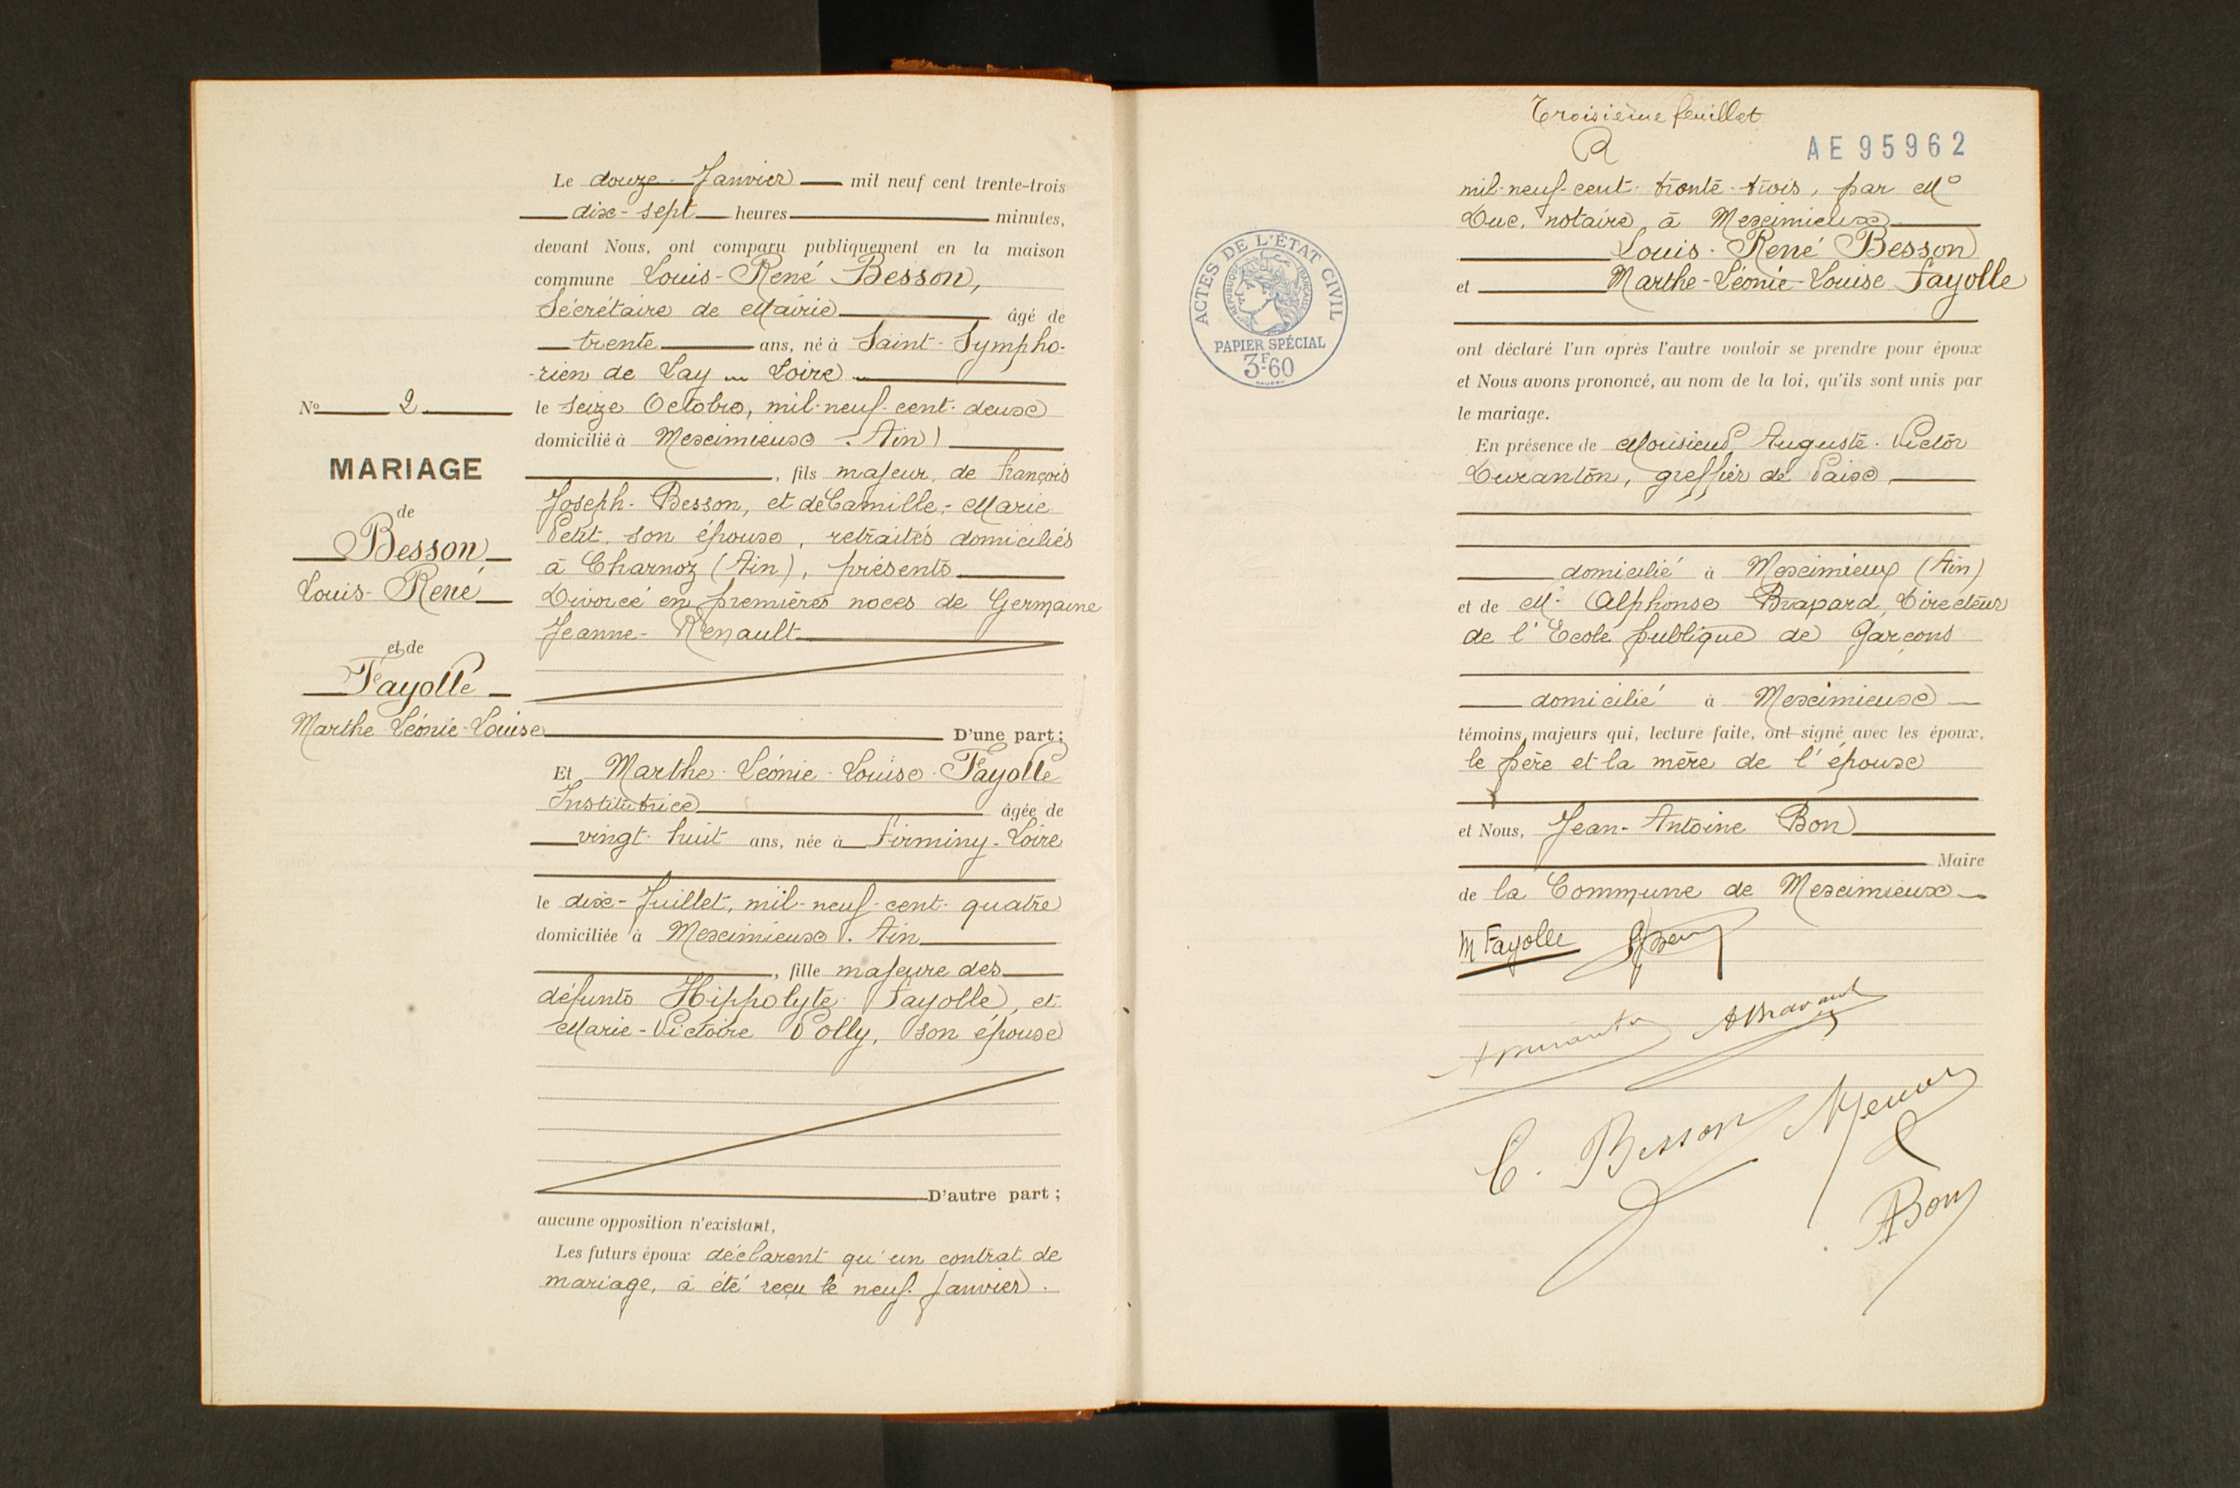 Le douze Janvier mil neuf cent trente-trois
dix-sept heures minutes,
devant Nous, ont comparu publiquement en la maison
commune Louis-René Besson,
Sécrétaire de Mairie âgé de
trente ans, né à Saint-Sympho-
-rien de Lay Loire
No 2
le seize Octobre, mil-neuf-cent-deux
domicilié à Meximieux (Ain)
MARIAGE
, fils majeur, de François
Joseph-Besson, et de Camille-Marie
de
Petit, son épouse, retraités domiciliés
Besson
à Charnoz (Ain), présents
Louis-René
Divorcé en premières noces de Germaine
Jeanne-Renault
et de
Fayolle
Marthe Léonie-Louise
D'une part;
Et Marthe-Léonie-Louise-Fayolle
Institutrice âgée de
vingt-huit ans, née à Firminy-Loire
le dix-Juillet, mil-neuf-cent-quatre
domiciliée à Meximieux. Ain
, fille majeure des
défunts Hippolyte Fayolle, et
Marie-Victoire Polly, son épouse
D'autre part;
aucune opposition n'existant,
Les futurs époux déclarent qu'un contrat de
mariage, à été reçu le neuf Janvier
Troisième feuillet
AE95962
mil-neuf-cent-trente-trois, par Me
Duc, notaire à Meximieux
Louis-René Besson
et Marthe-Léonie-Louise Fayolle
ACTES DE L'ÉTAT CIVIL
PAPIER SPÉCIAL
3F.60
ont déclaré l'un après l'autre vouloir se prendre pour époux
et Nous avons prononcé, au nom de la loi, qu'ils sont unis par
le mariage.
En présence de Monsieur Auguste-Victor
Duranton, greffier de Paix
domicilié à Meximieux (Ain)
et de M. Alphonse Directeur
de l'Ecole publique de Garçons
domicilié à Meximieux
témoins majeurs qui, lecture faite, ont signé avec les époux,
le père et la mère de l'époux
et Nous, Jean-Antoine Bon
Maire
de la Commune de Meximieux
M Fayolle
C. Besson
ABon